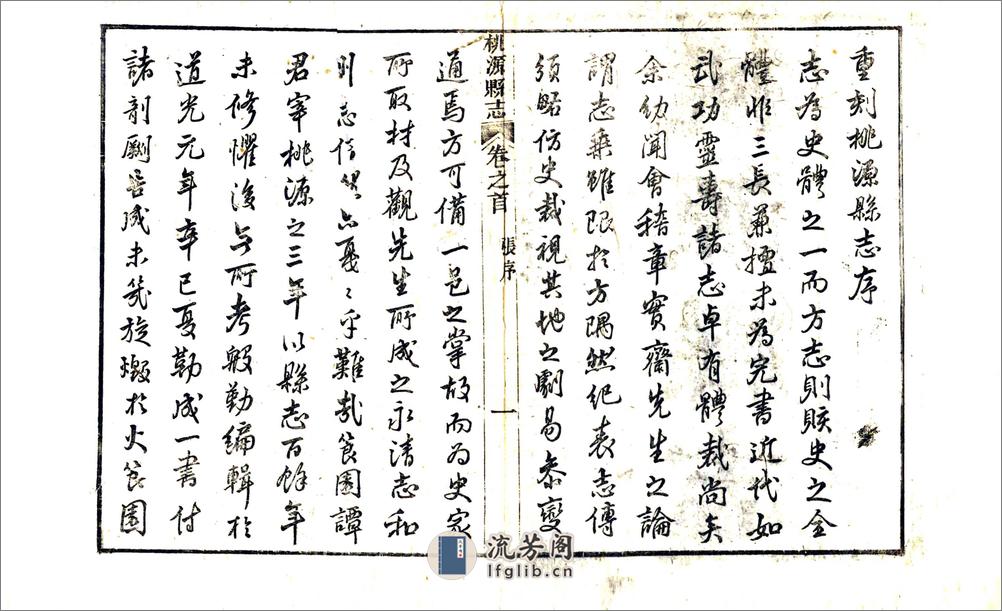 重刻桃源縣志序
志為史體之一而方志則賅史之全
體非三長兼擅未為完書近代如
武功靈壽諸志卓有體裁尚矣
余幼聞會稽章實齋先生之論
謂志乘雖限於方隅然紀表志傳
須略仿史裁視其地之劇易參變
桃源縣志
卷之首
張序
一
通焉方可備一邑之掌故而為史家
所取材及觀先生所成之永清志和
州志信然亦戛〻乎難哉筤園譚
君宰桃源之三年以縣志百餘年
未修懼後無所考毅勤編輯於
道光元年辛巳夏勒成一書付
諸剞劂告成未幾旋燬於火筤園
流芳阁
lfglib.cn